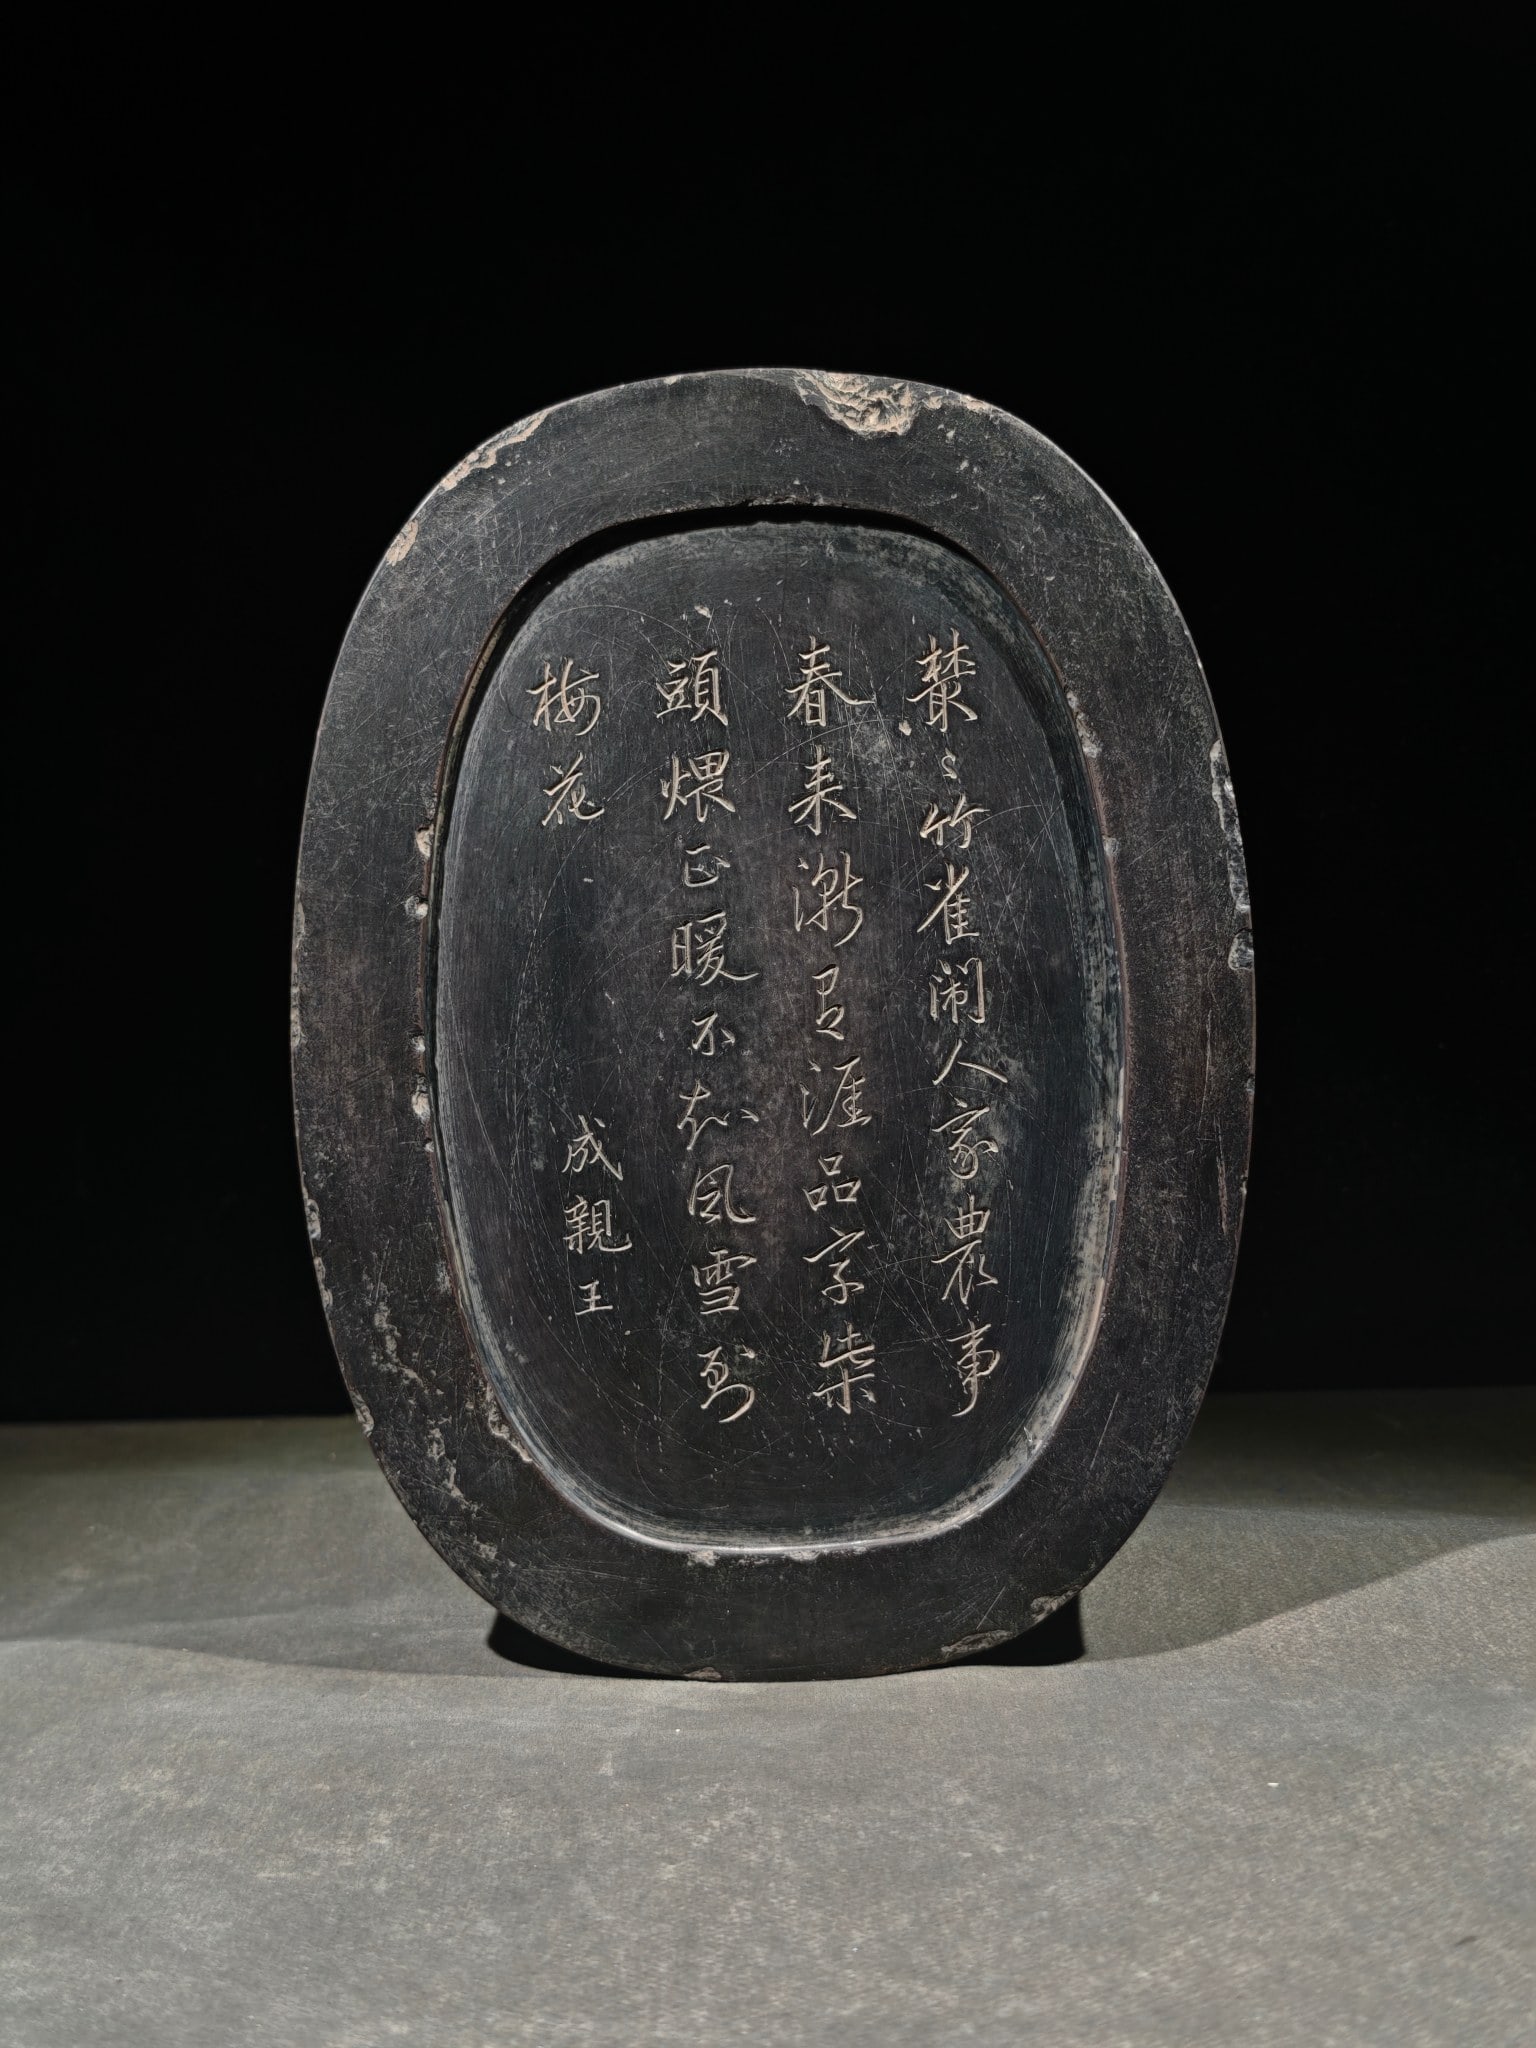 叢〻竹雀闹人家農事
春来漸有涯品字柴
頭煨正暖不知風雪到
梅花
成親王